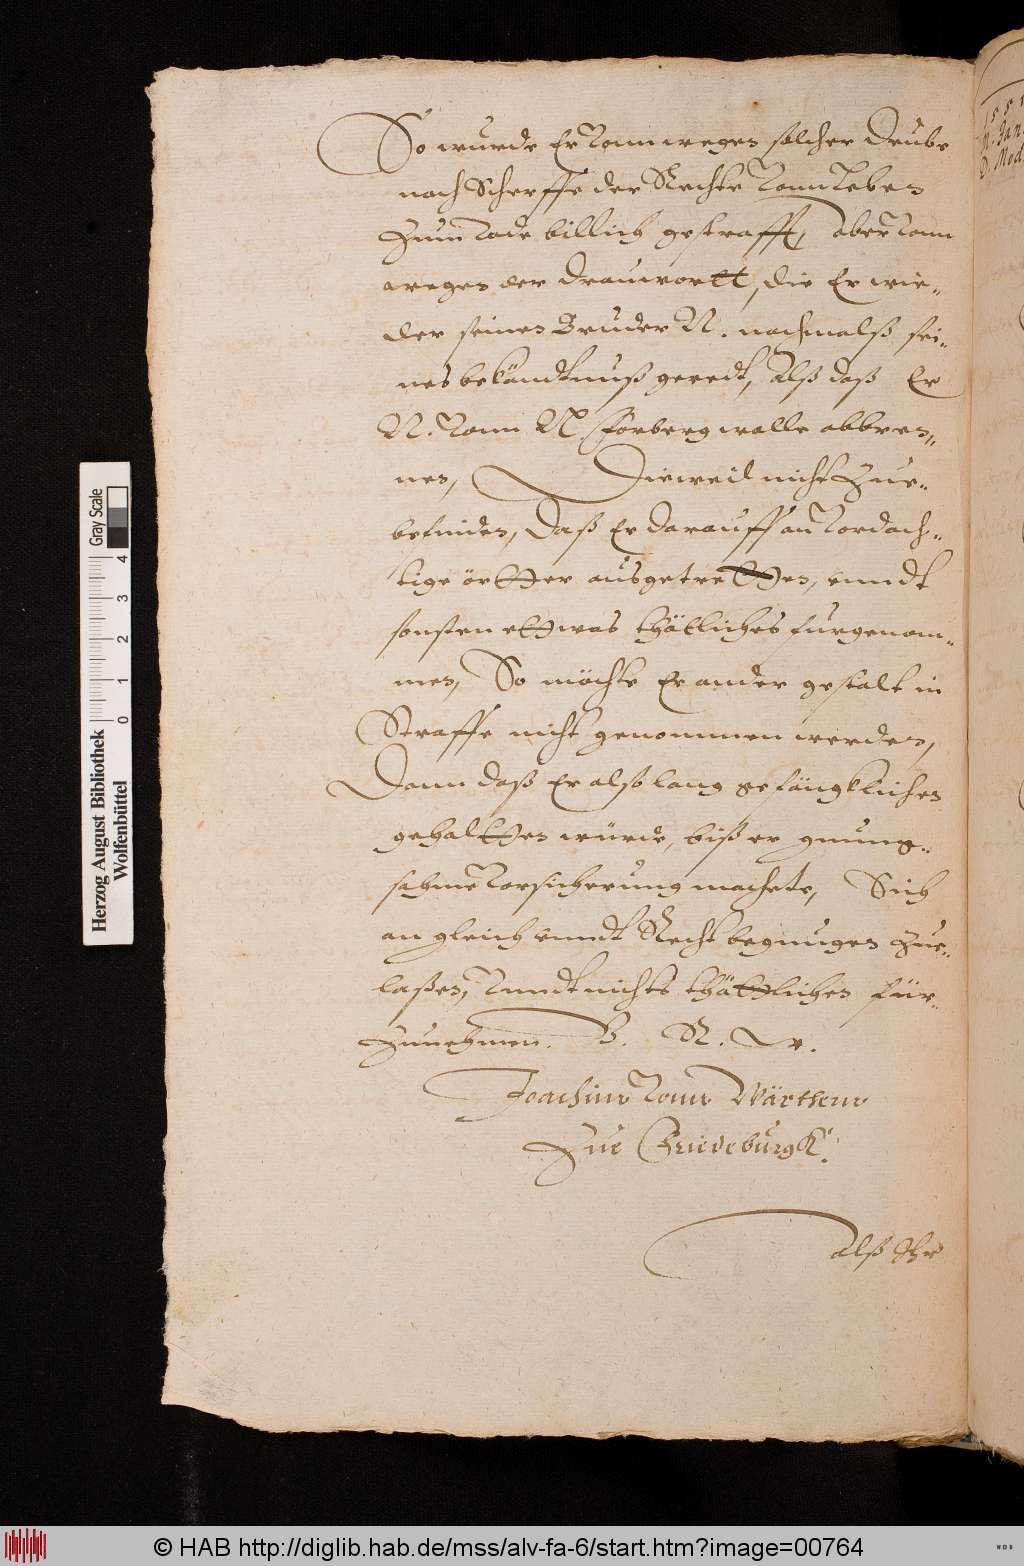 So wurde Er vonn wegen solcher Deube
nach Scherffe der Rechte vom Leben
Zum tode billich gestrafft, Aber vonn
wegen der Drauwortt, die Er wie„
der seinen Bruder N. nochmalß sei„
nes bekändtnuß geredt, Alß daß Er
N. vonn N Forberg wolle abbren„
nen, Dieweil nicht Zue„
befinden, Daß Er darauff an vordech„
tige örtter ausgetretten, unndt
sonsten ettwas thätliches furgenom„
men, So möchte Er ander gestalt in
Straffe nicht genommen werden,
Dann daß Er also lang gefängklichen
gehaltten würde, biß er gnung„
sahme vorsicherung machete, Sich
an gleich unndt Recht begnugen Zue„
laßen, Vnndt nichts thättliches für„
Zunehmen. V. R. W.
Joachim vonn Wärthern
Zue Brücheburgk.
Alß Ihr
155
N. Jan
D. Mod
Gray Scale
4 3 2 1 0
Herzog August Bibliothek
Wolfenbüttel
© HAB http://diglib.hab.de/mss/alv-fa-6/start.htm?image=00764
WDB